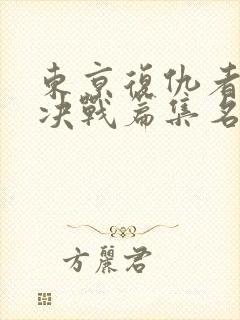 東京復仇者
決戰篇集名
方麗君